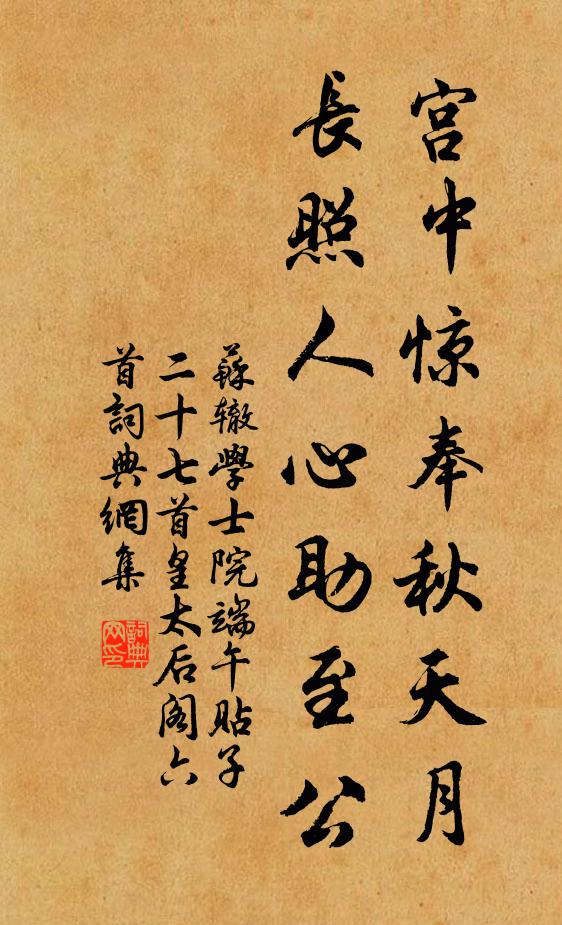 宫中惊奉秋天月
長照人心助至公
蘇辙學士院端午貼子
二十七首皇太后阁六
首詞典網集
詞典
网印